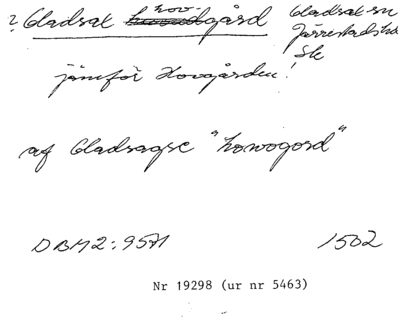 ? Gladsax hov-gård Gladsax sn
Järrestads hd
Sk
jämför Hovgården!
af Gladsagxe "howogord"
DBH2:9571 1502
Nr 19298 (ur nr 5463)